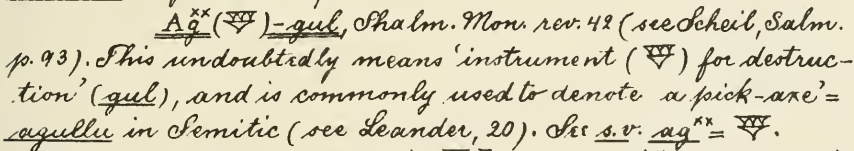 Ag̃ˣˣ (𒅅)-gul, Shalm. Mon. rev. 42 (see Scheil, Salm.
p. 93). This undoubtedly means 'instrument ( ) for destruc-
tion' (gul), and is commonly used to denote a pick-axe' =
agullu in Semitic (see Leander, 20). See s.v. agˣˣ = .